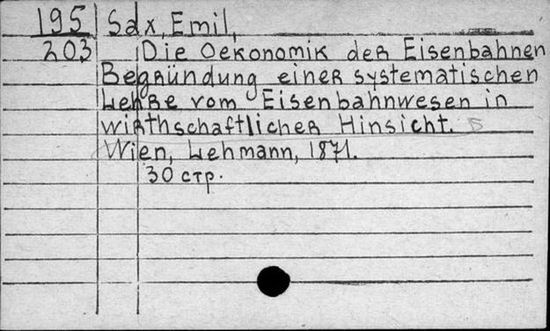 195 Sax, Emil,
203 Die Oekonomik der Eisenbahnen
Begründung einer systematischen
Lehre vom Eisenbahnwesen in
wirthschaftlicher Hinsicht.
Wien, Lehmann, 1871.
30 стр.